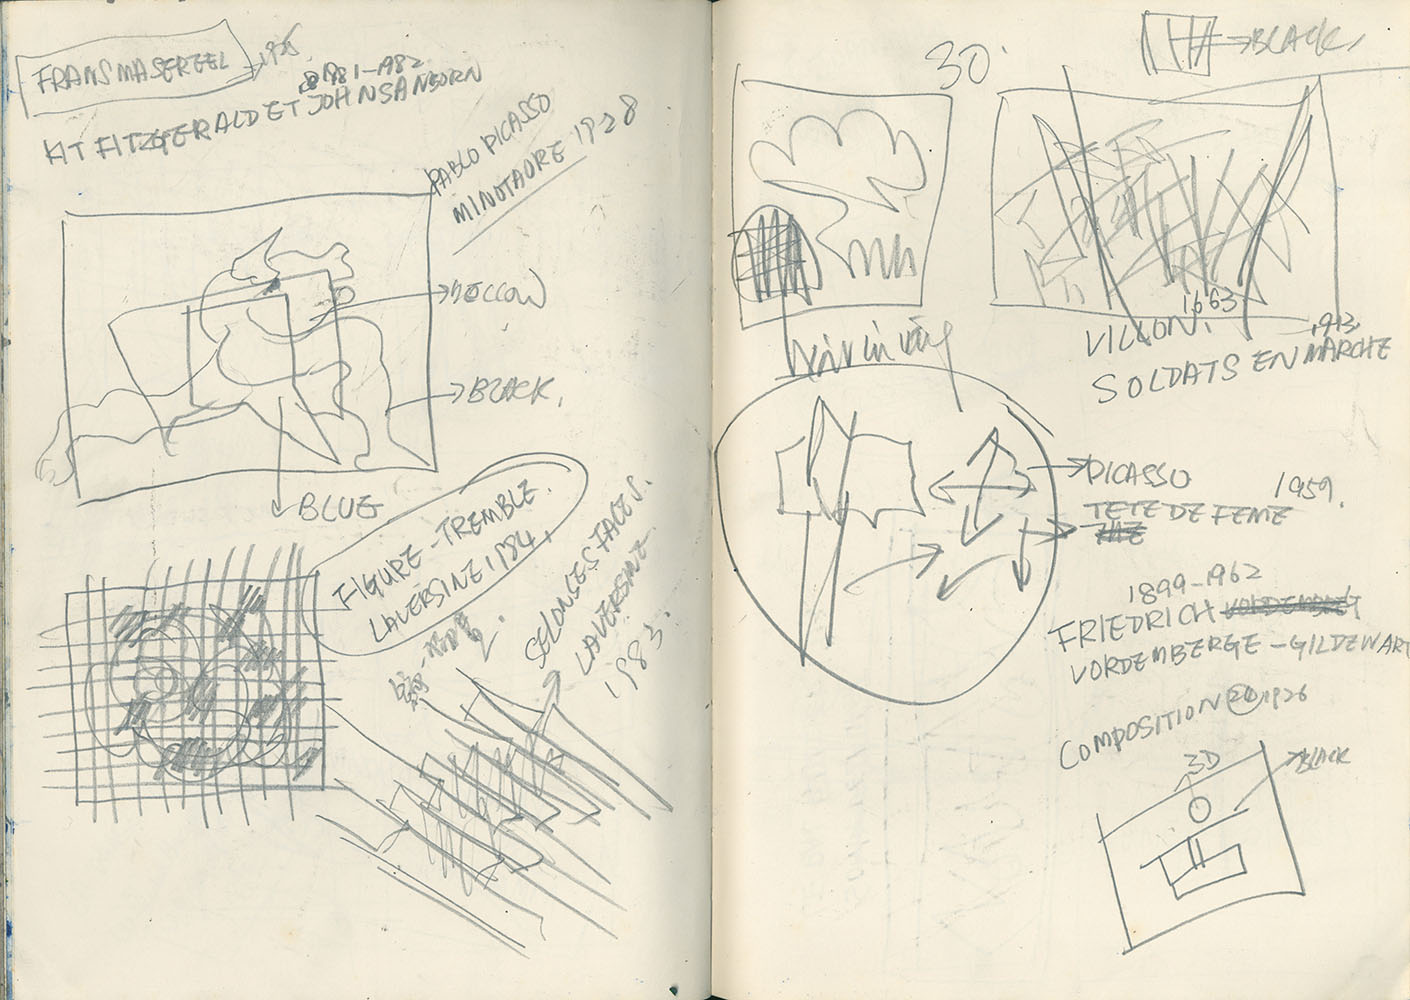 FRANS MASEREEL
1981-1982
KIT FITZGERALD ET JOHN SANBORN
PABLO PICASSO
MINOTAURE 1928
YELLOW
BLACK.
BLUE
FIGURE-TREMBLE.
LAVERSINE 1984.
SELON SES FACES.
LAVERSINE
1983.
30.
BLACK.
VILLON. 1663
1913
SOLDATS EN MARCHE
PICASSO
TETE DE FEME
1959.
1899-1962
FRIEDRICH
VORDEMBERGE-GILDEWART
COMPOSITION 1926
3D
BLACK